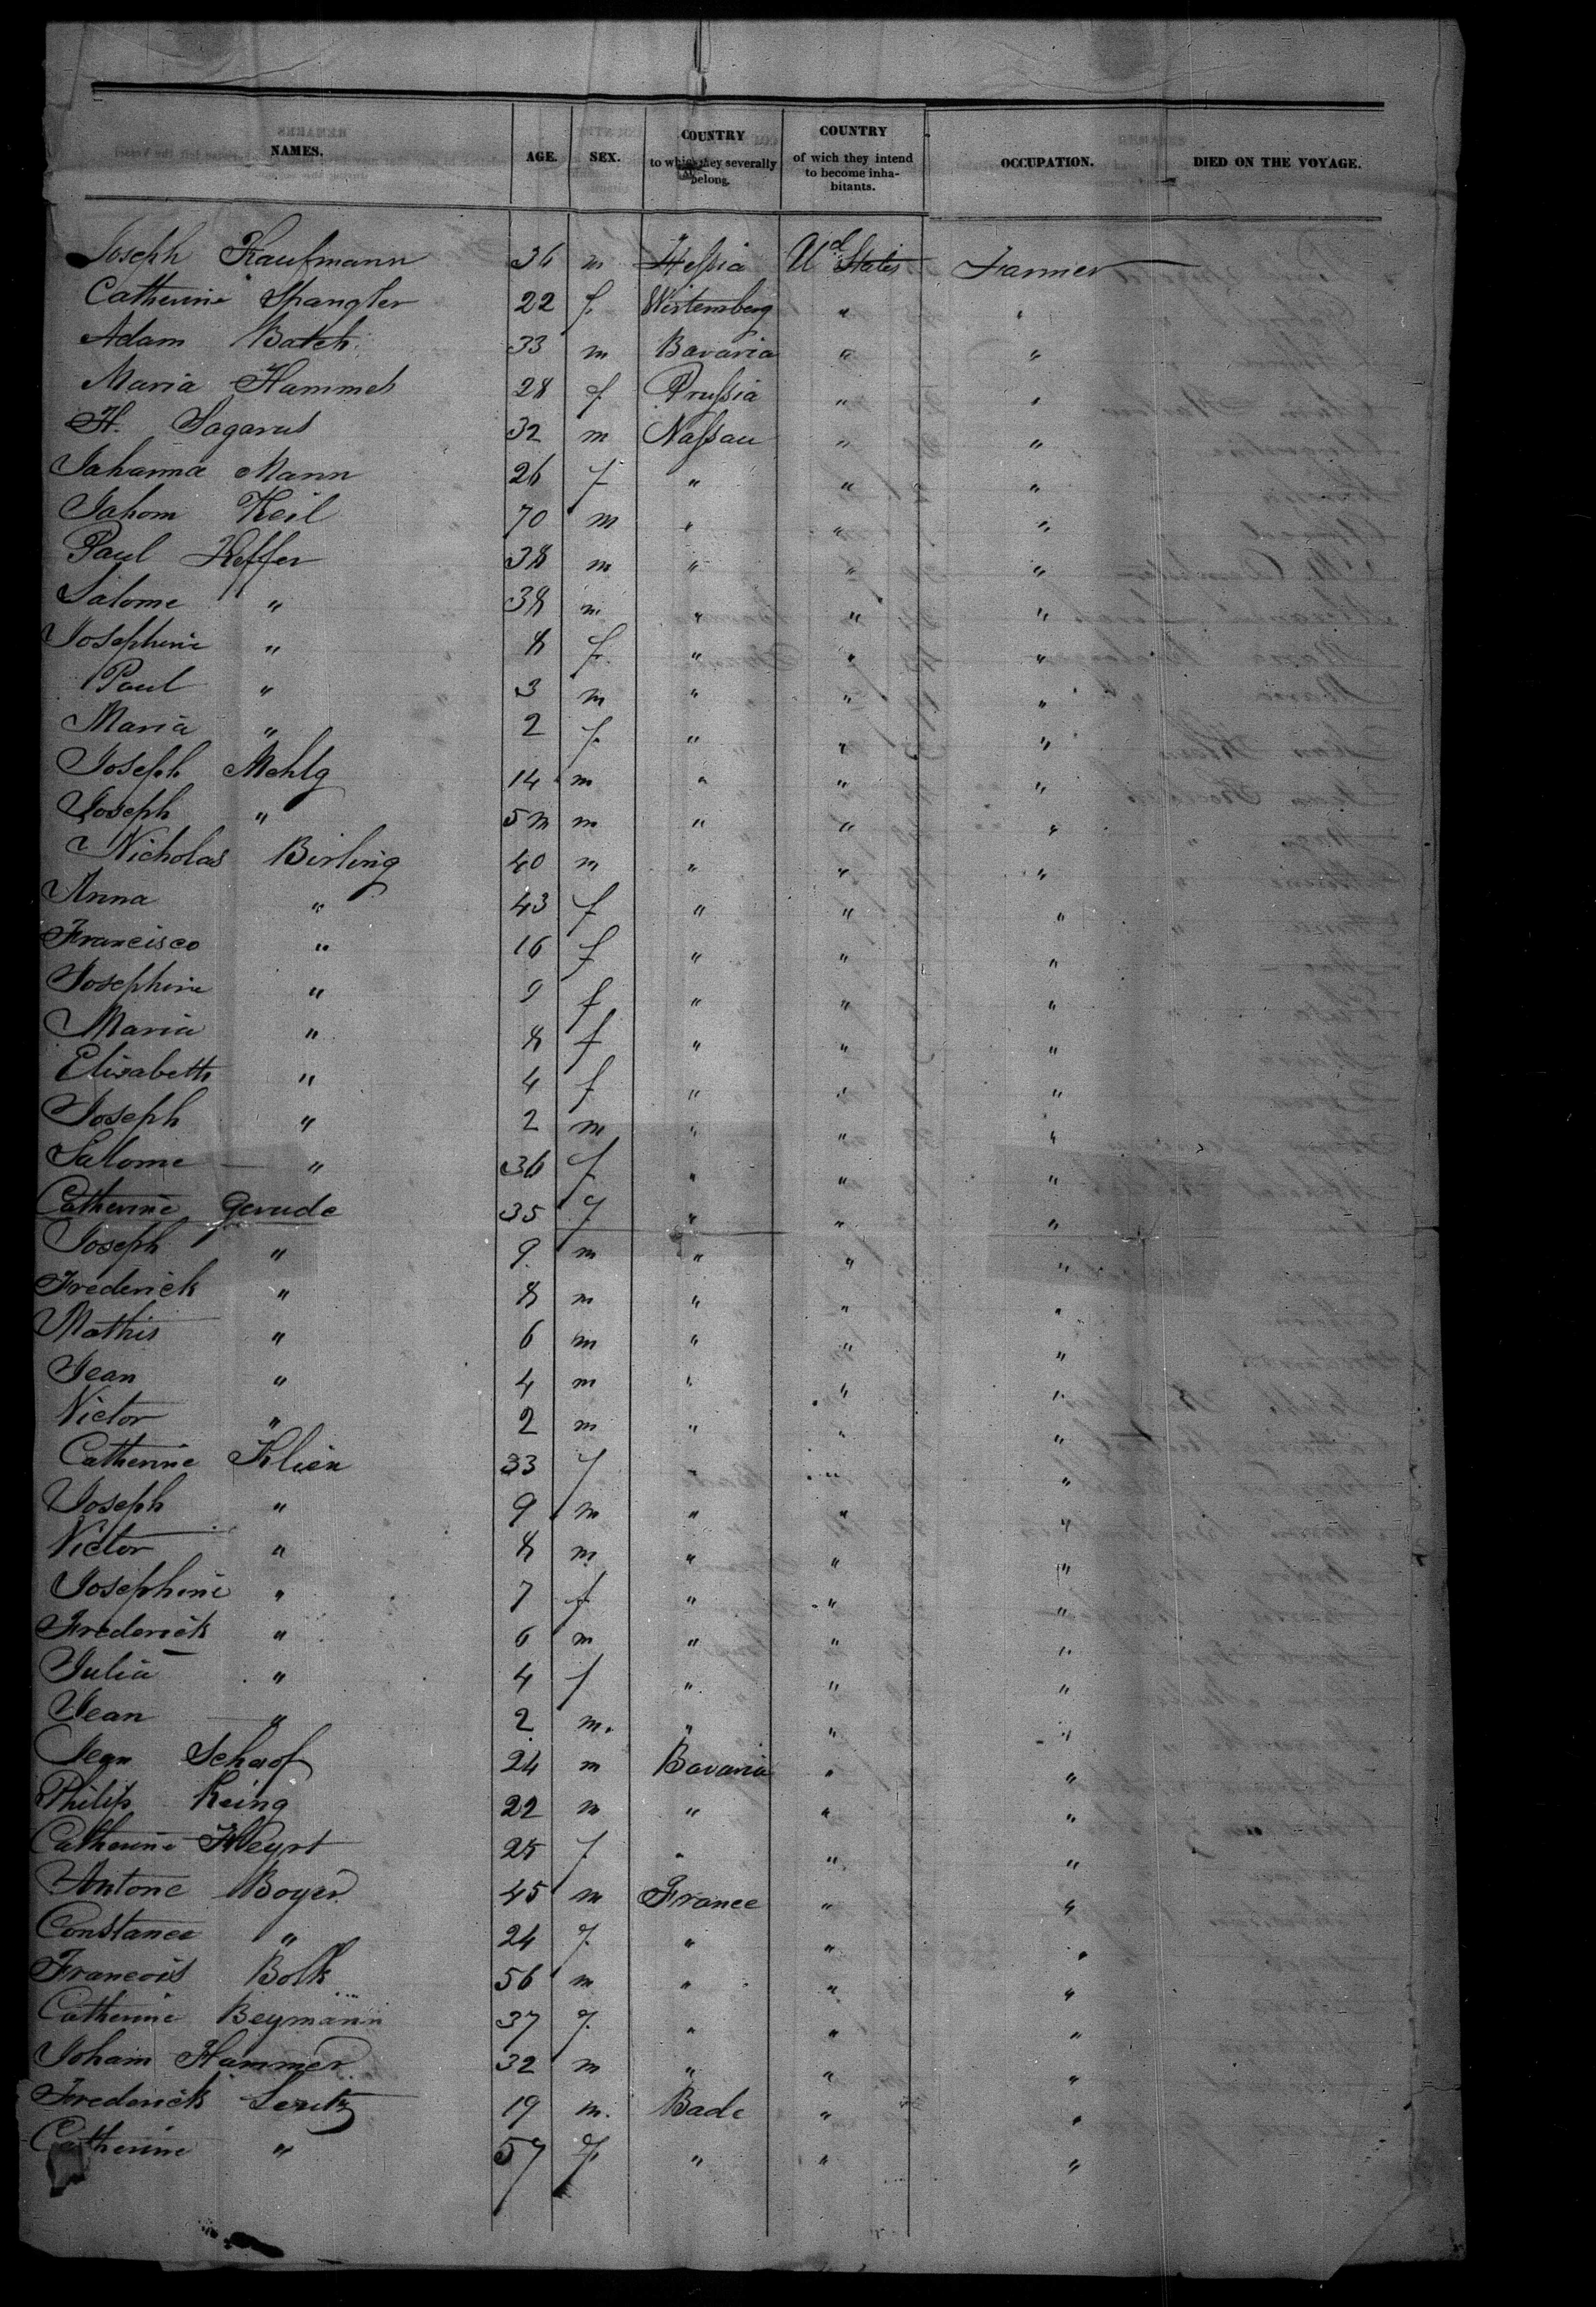 NAMES. AGE. SEX. COUNTRY to which they severally belong. COUNTRY of wich they intend to become inhabitants. OCCUPATION. DIED ON THE VOYAGE.
Joseph Kaufmann 36 m Hessia Ud States Farmer
Catherine Spangler 22 f Wirtemberg " "
Adam Batch 33 m Bavaria " "
Maria Hammel 28 f Prussia " "
H. Sagarus 32 m Nassau " "
Johanna Mann 26 f " " "
Johom Keil 70 m " " "
Paul Heffer 38 m " " "
Salome " 38 m " " "
Josephine " 8 f " " "
Paul " 3 m " " "
Maria " 2 f " " "
Joseph Mehlg 14 m " " "
Joseph " 5m m " " "
Nicholas Birling 40 m " " "
Anna " 43 f " " "
Francisco " 16 f " " "
Josephine " 9 f " " "
Maria " 8 f " " "
Elisabeth " 4 f " " "
Joseph " 2 m " " "
Salome " 36 f " " "
Catherine Gerude 35 f " " "
Joseph " 9 m " " "
Frederick " 8 m " " "
Mathis " 6 m " " "
Jean " 4 m " " "
Victor " 2 m " " "
Catherine Klien 33 f " " "
Joseph " 9 m " " "
Victor " 8 m " " "
Josephine " 7 f " " "
Frederick " 6 m " " "
Julia " 4 f " " "
Jean " 2 m. " " "
Jean Schaof 24 m Bavaria " "
Philip Keing 22 m " " "
Catherine 25 f " " "
Antone Boyer 45 m France " "
Constance " 24 f " " "
Francois Bolk 56 m " " "
Catherine Beymann 37 f " " "
Joham Hammer 32 m " " "
Frederick Lentz 19 m. Bade " "
Catherine " 57 f " " "